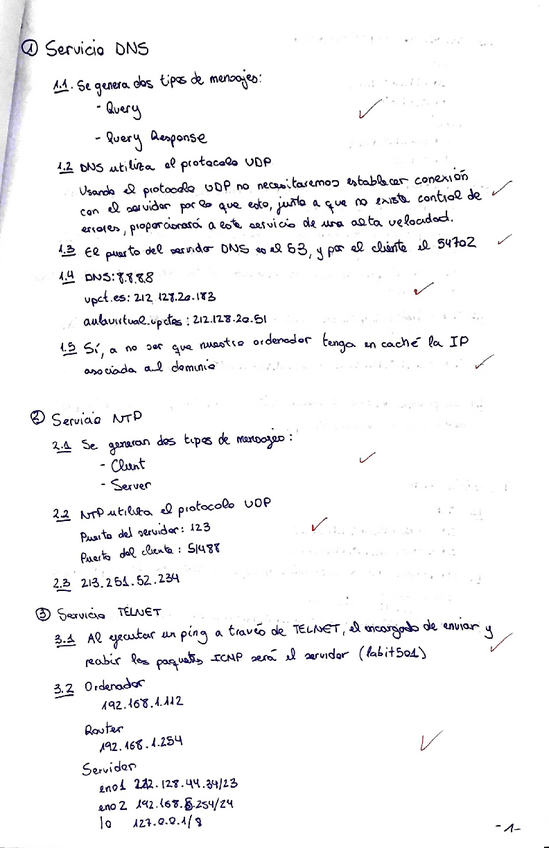 ① Servicio DNS
1.1. Se genera dos tipos de mensajes:
- Query
- Query Response
1.2 DNS utiliza el protocolo UDP
Usando el protocolo UDP no necesitaremos establecer conexión
con el servidor por lo que esto, junto a que no existe control de
errores, proporcionará a este servicio de una alta velocidad.
1.3 El puerto del servidor DNS es el 53, y por el cliente el 54702
1.4 DNS: 8.8.8.8
upct.es: 212.128.20.183
aulavirtual.upct.es: 212.128.20.51
1.5 Sí, a no ser que nuestro ordenador tenga en caché la IP
asociada al dominio
② Servicio NTP
2.1 Se generan dos tipos de mensajes:
- Client
- Server
2.2 NTP utiliza el protocolo UDP
Puerto del servidor: 123
Puerto del cliente: 51488
2.3 213.251.52.234
③ Servicio TELNET
3.1 Al ejecutar un ping a través de TELNET, el encargado de enviar y
recibir los paquetes ICMP será el servidor (labit501)
3.2 Ordenador
192.168.1.112
Router
192.168.1.254
Servidor
eno1 212.128.44.34/23
eno2 192.168.254/24
lo 127.0.0.1/8
-1-